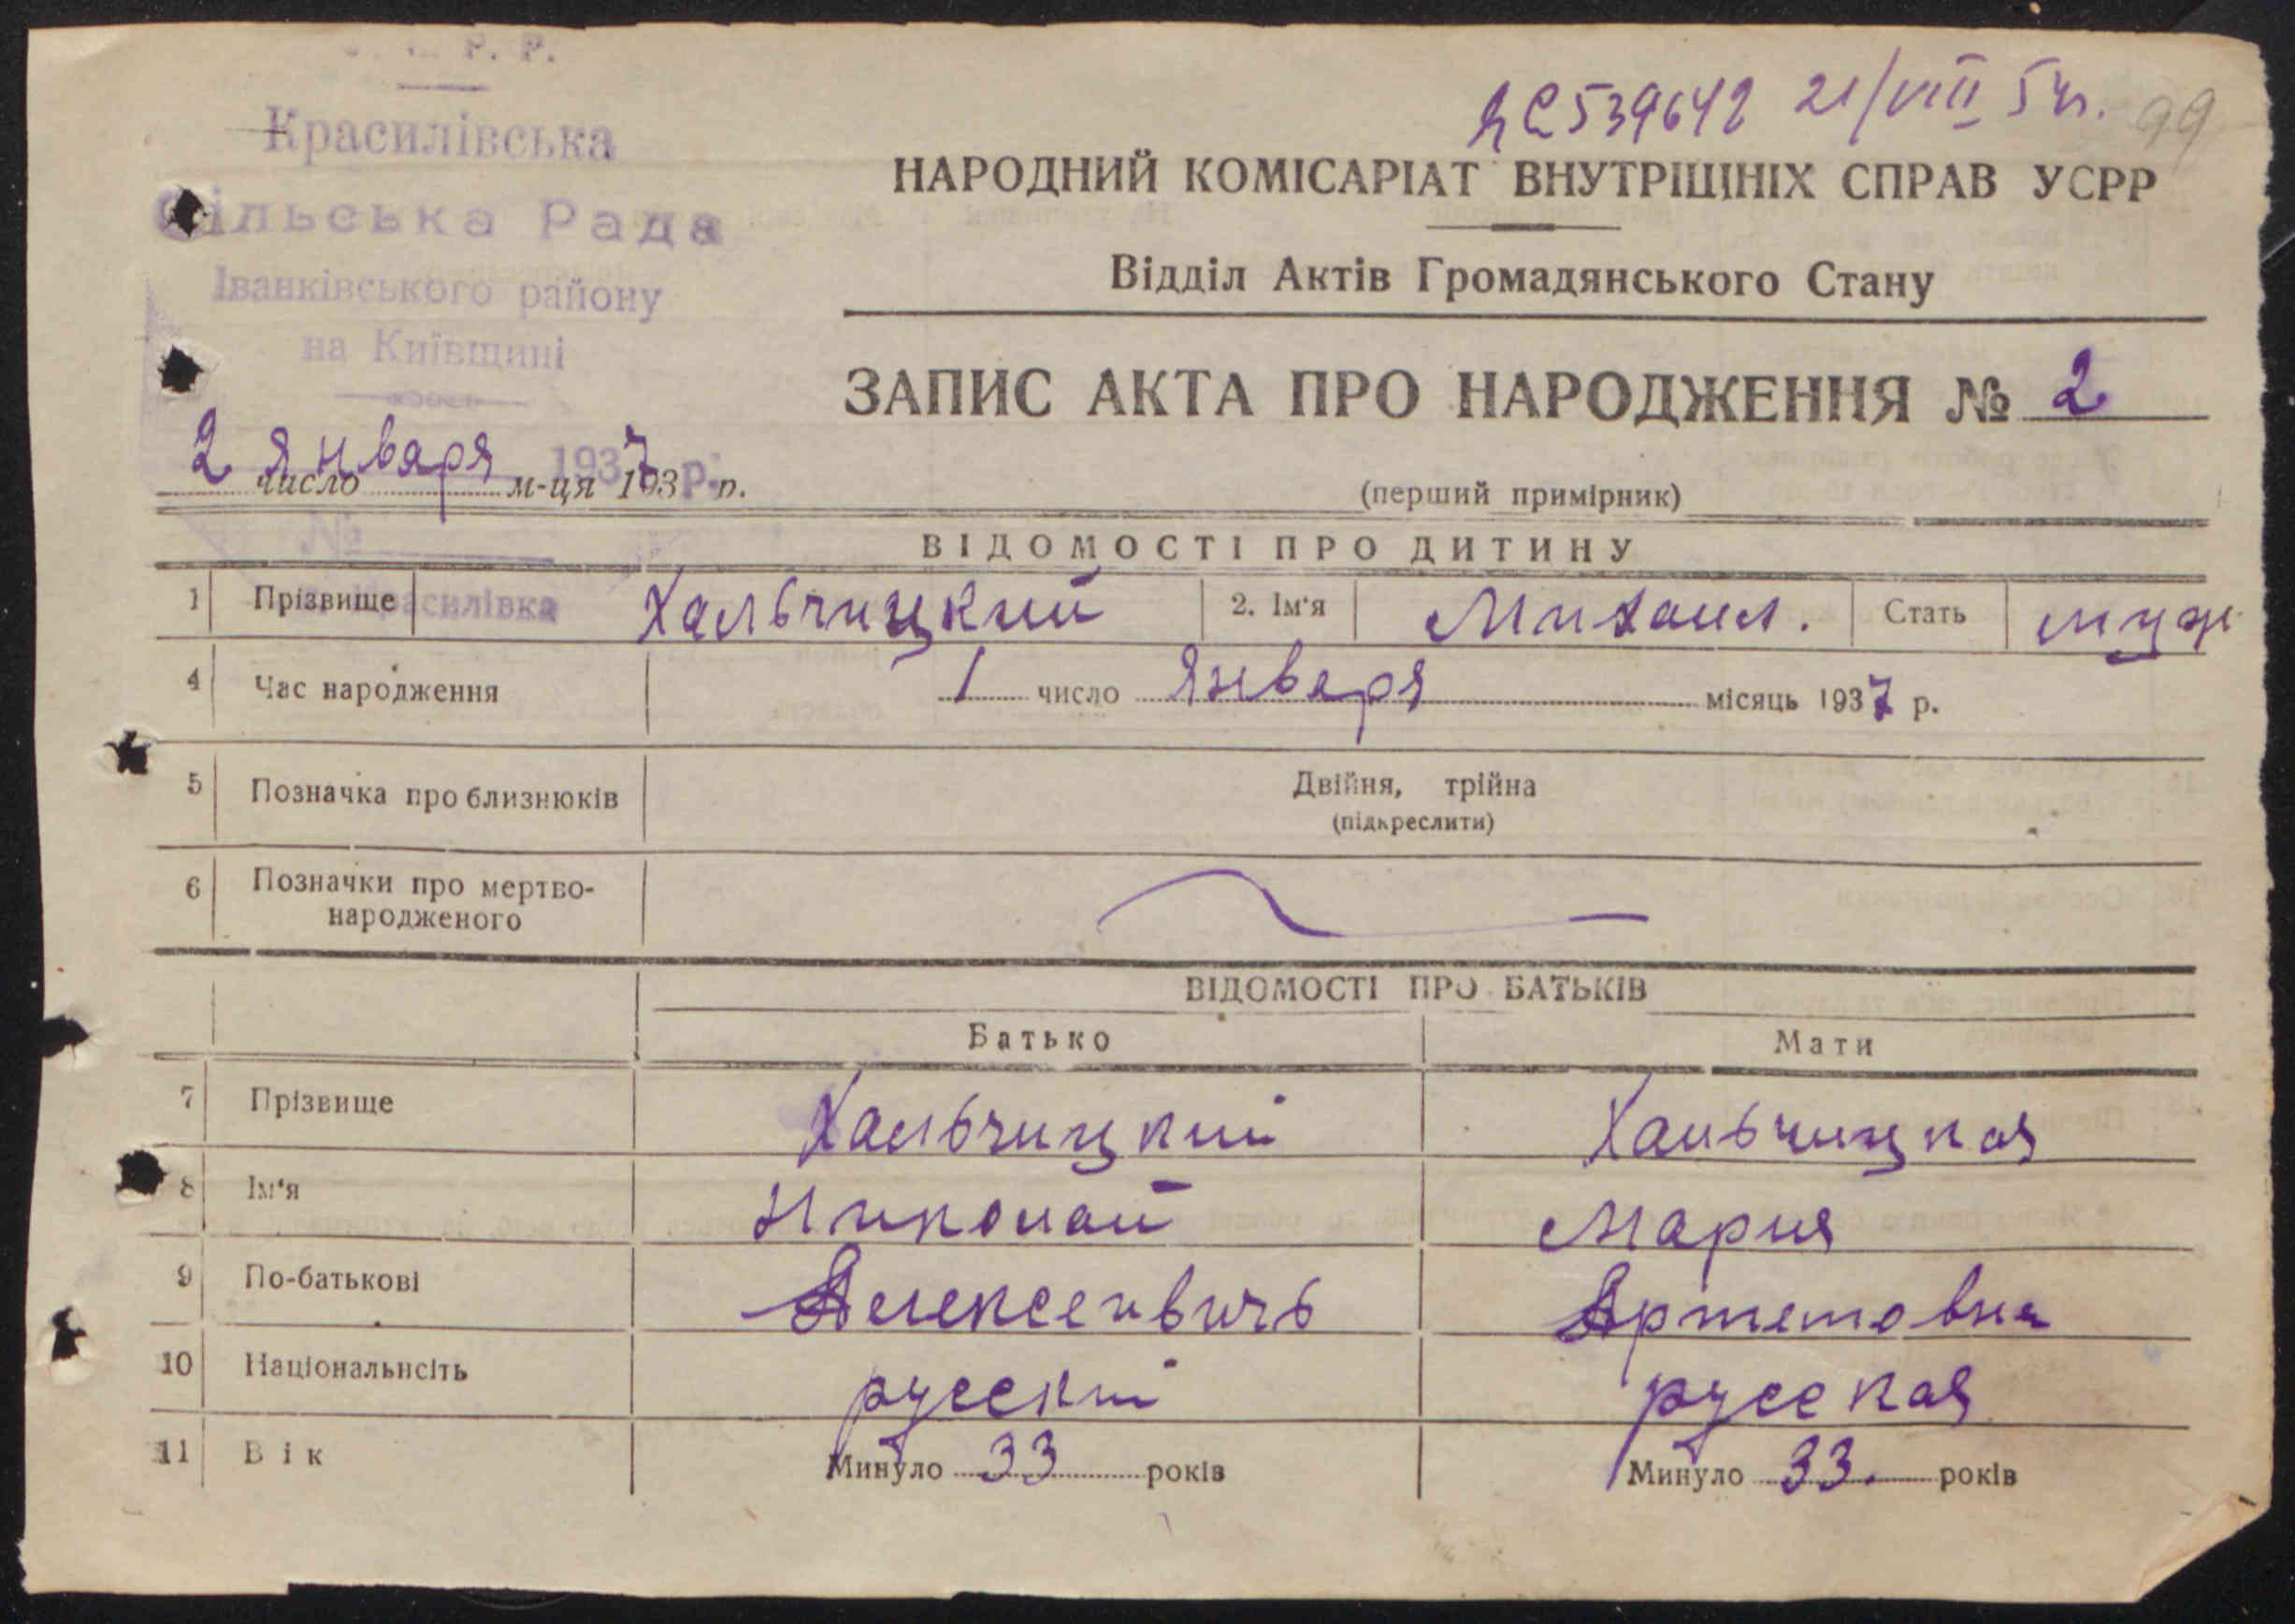 Р. Р.
Красилівська
Сільська Рада
Іванківського району
на Київщині
21/VIII 54г. 99
НАРОДНИЙ КОМІСАРІАТ ВНУТРІШНІХ СПРАВ УСРР
Відділ Актів Громадянського Стану
ЗАПИС АКТА ПРО НАРОДЖЕННЯ № 2
2 число января м-ця 1937 р.
(перший примірник)
№
ВІДОМОСТІ ПРО ДИТИНУ
1 Прізвище Хальчицкий 2. Ім'я Михаил. Стать муж
Красилівка
4 Час народження 1 число Января місяць 1937 р.
5 Позначка про близнюків Двійня, трійна
(підкреслити)
6 Позначки про мертво-
народженого
ВІДОМОСТІ ПРО БАТЬКІВ
Батько Мати
7 Прізвище Хальчицкий Хальчицкая
8 Ім'я Николай Мария
9 По-батькові Алексеивичь Артемовна
10 Національнсіть русский русская
11 Вік Минуло 33 років Минуло 33. років